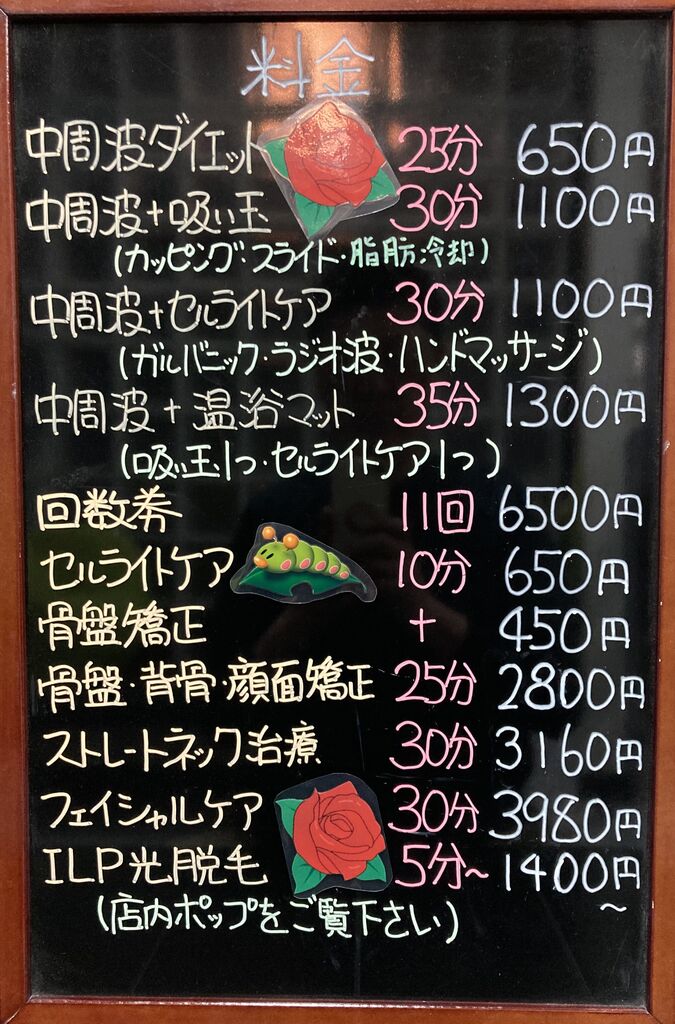 料金
中周波ダイエット 25分 650円
中周波+吸い玉 30分 1100円
(カッピング・スライド・脂肪冷却)
中周波+セルライトケア 30分 1100円
(ガルバニック・ラジオ波・ハンドマッサージ)
中周波+温浴マット 35分 1300円
(吸い玉1つ・セルライトケア1つ)
回数券 11回 6500円
セルライトケア 10分 650円
骨盤矯正 + 450円
骨盤・背骨・顔面矯正 25分 2800円
ストレートネック治療 30分 3160円
フェイシャルケア 30分 3980円
ILP光脱毛 5分~ 1400円~
(店内ポップをご覧下さい)